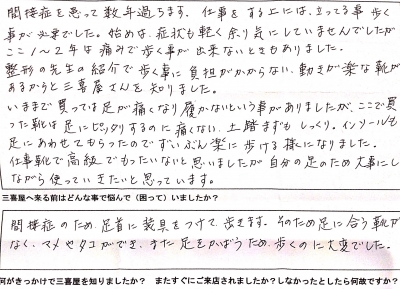 間接症を患って数年過ちます。仕事をする上には、立ってる事 歩く
事が必要でした。始めは、症状も軽く余り気にしていませんでしたが
ここ1〜2年は痛みで歩く事が出来ないときもありました。
整形の先生の紹介で歩く事に負担がかからない、動きが楽な靴が
あるからと三喜屋さんを知りました。
いままで買っては足が痛くなり履かないという事がありましたが、ここで買
った靴は足にピッタリするのに痛くない、土踏まずもしっくり。インソールも
足にあわせてもらったのでずいぶん楽に歩ける様になりました。
仕事靴で高級でもったいないと思いましたが自分の足のため大事にし
ながら使っていきたいと思っています。
三喜屋へ来る前はどんな事で悩んで（困って）いましたか？
間接症のため、足首に装具をつけて、歩きます。そのため足に合う靴が
なく、マメやタコができ、また足をかばうため、歩くのに大変でした。
何がきっかけで三喜屋を知りましたか？ またすぐにご来店されましたか？しなかったとしたら何故ですか？